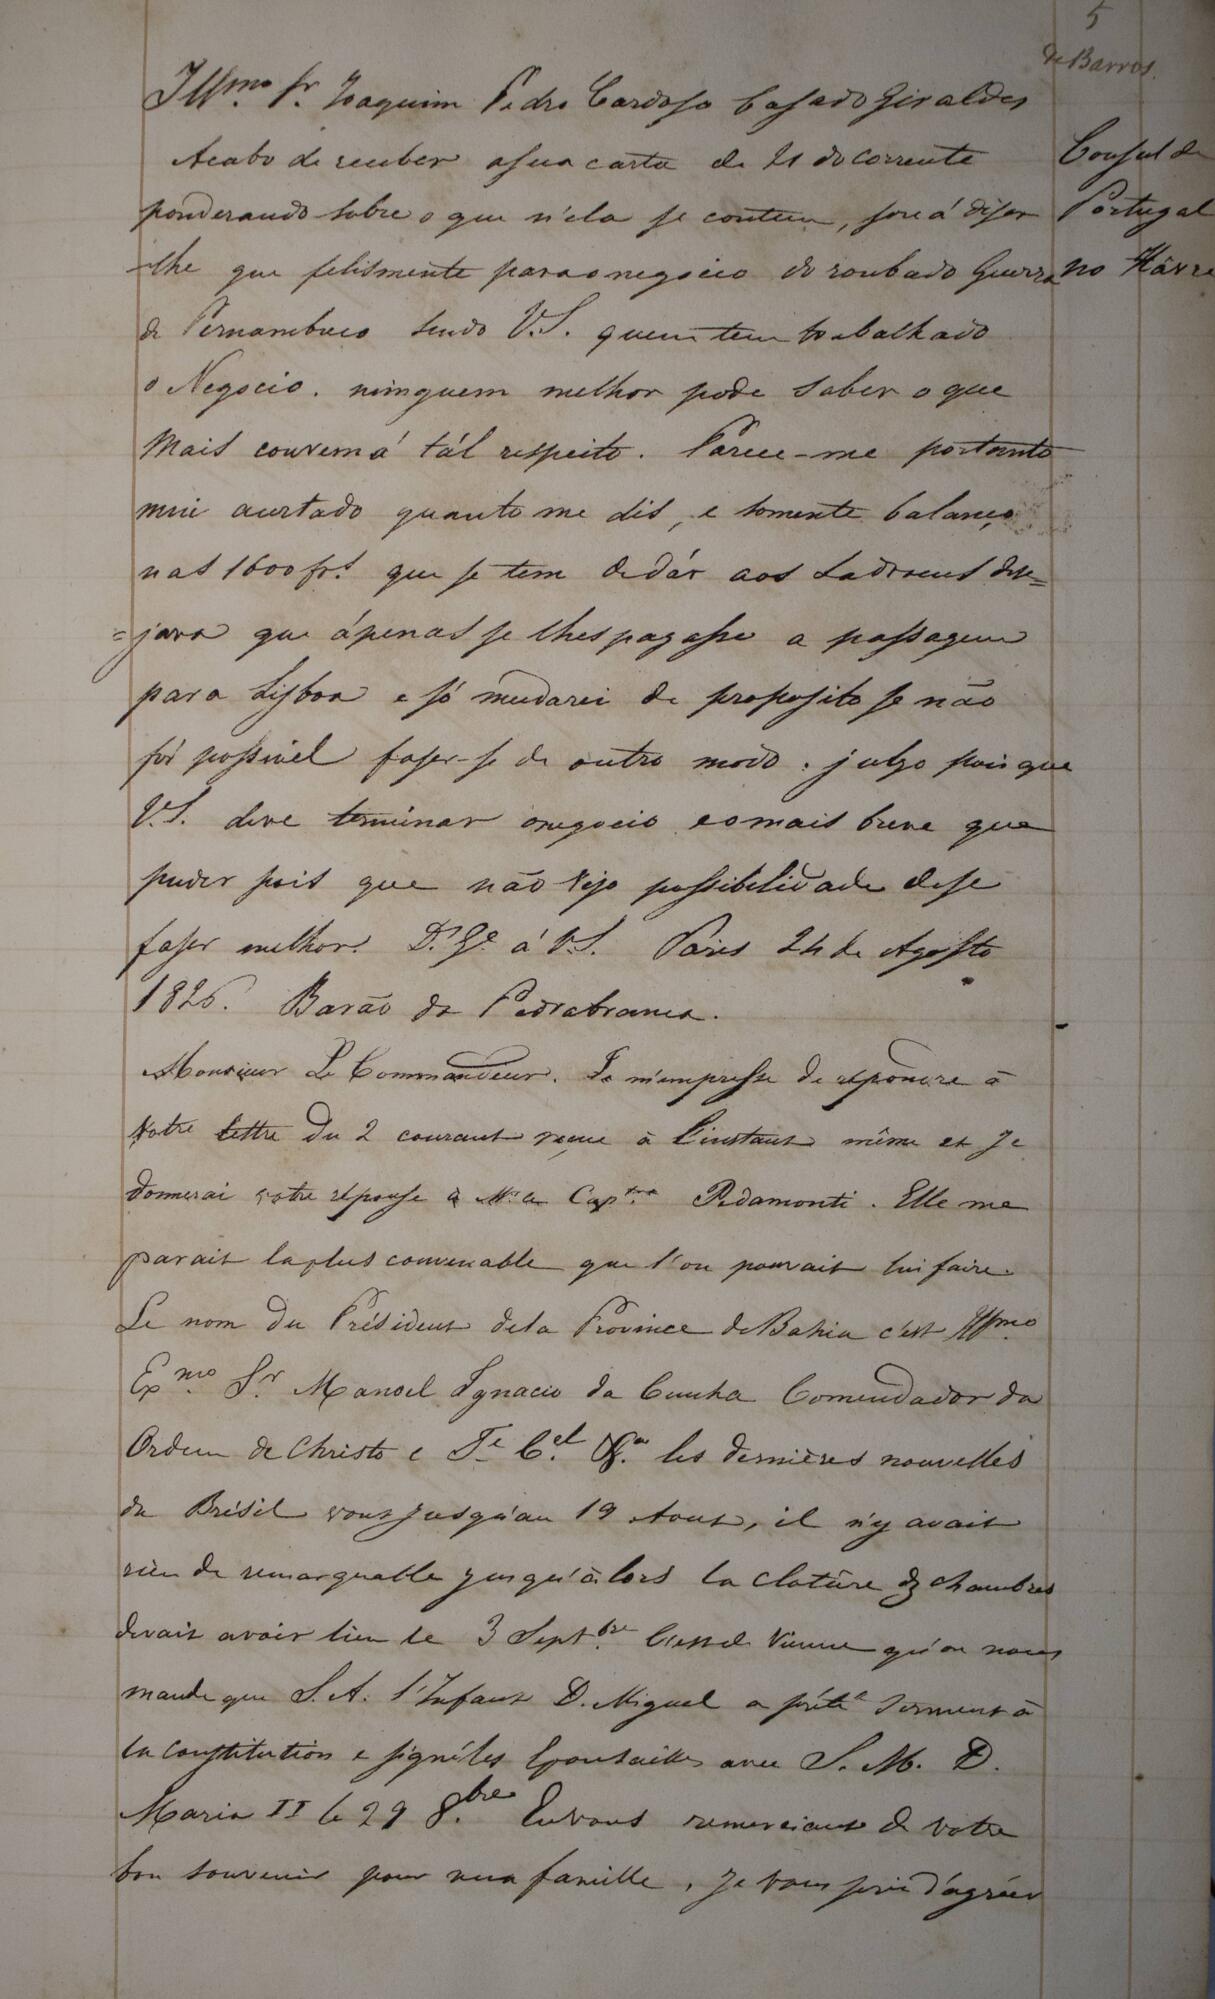 5
de Barros.
Illmo. Sr. Joaquim Pedro Cardoso Casado Giraldes
Consul de
Portugal
no Hâvre
Acabo de receber a sua carta de 21 do corrente
ponderando sobre o que n'ela se contem, sou á diser
-lhe que felismente para o negocio do roubado Guerra
de Pernambuco sendo V.S. quem tem trabalhado
o Negocio. ninguem melhor pode saber o que
Mais convem á tál respeito. Parece-me portanto
mui acertado quanto me dis, e somente balanço
nas 1600 frs. que se tem de dár aos Ladroens dese=
=java que ápenas se lhes pagasse a passagem
para Lisboa e só mudarei de proposito se não
fôr possivel faser-se de outro modo. julgo pois que
V.S. deve terminar o negocio e o mais breve que
puder pois que não vejo possibilidade de se
faser melhor. Ds. Ge. á V.S. Paris 24 de Agosto
1826. Barão da Pedrabranca.
Monsieur Le Commandeur. Je m'empresse de repondre à
votre lettre du 2 courant reçue à l'instant même et je
donnerai votre réponse à Capne. Pedamonti. Elle me
parait la plus convenable que l'on pouvait lui faire.
Le nom du Président de la Province de Bahia c'est Illmo.
Exmo. Sr. Manoel Ignacio da Cunha Comendador da
Ordem de Christo e Te. Cel. les dernières nouvelles
du Brésil vont jusqu'au 19 Aout, il n'y avait
rien de remarquable jusqu'à lors la clotûre des chambres
devait avoir lieu le 3 Septbre. C'est de Vienne qu'on nous
mande que S.A. l'Infant D. Miguel a prété serment à
la constitution e signé les Epousailles avec S. M. D.
Maria II le 29 8bre. En vous remerciant de votre
bon souvenir pour ma famille, je vous prie d'agréer